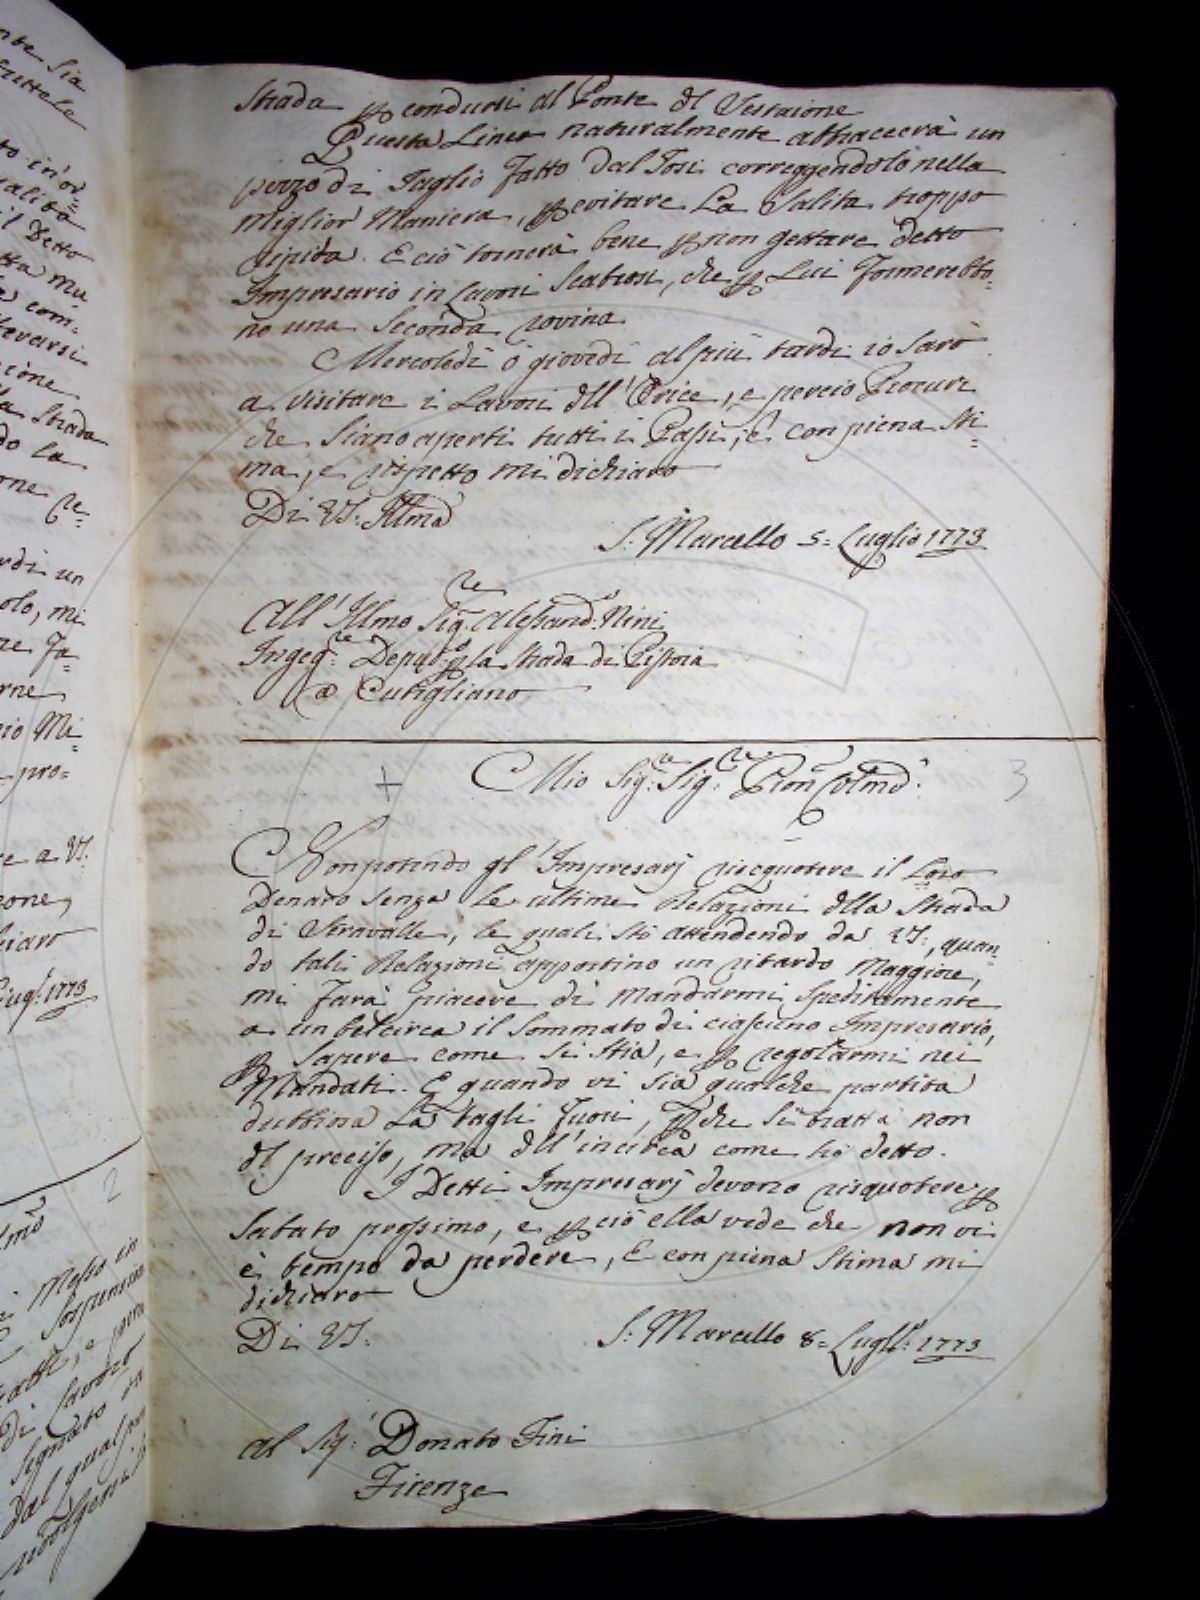 Strada p condursi al Ponte dl Sestaione
Questa Linea naturalmente abbraccerà un
pezzo di Taglio fatto dal Tosi correggendolo nella
miglior Maniera, p evitare La Salita troppo
ripida. E ciò tornerà bene p non gettare detto
Impresario in Lavori Scabrosi, che p Lui formerebbo-
no una Seconda rovina
Mercoledì ò giovedì al più tardi io Sarò
a visitare i Lavori dll' Orice, e perciò Procuri
che Siano aperti tutti i Passi, e con piena Sti-
ma, e rispetto mi dichiaro
Di VS: Illma
S. Marcello 5= Luglio 1773
All' Illmo Sig.re Alessand.o Nini
Ingeg.re Deput.o p la Strada di Pistoia
a Cutigliano
Mio Sig.re Sig.re Pron Colmo
3
Non potendo gl' Impresarj risquotere il Loro
Denaro senza le ultime Relazioni dlla Strada
di Seravalle, le quali stò attendendo da VS:, quan-
do tali Relazioni apportino un ritardo Maggiore,
mi farà piacere di mandarmi Speditamente
a un belcirca il Sommato di ciascuno Impresario,
p Sapere come si Stia, e p regolarmi nei
Mandati. E quando vi sia qualche partita
dubbiosa La tagli fuori, p che si tratta non
dl preciso, ma dll' incirca come hò detto.
I Detti Impresarj devono risquotere p
Sabato prossimo, e p ciò ella vede che non vi
è tempo da perdere, E con piena Stima mi
dichiaro
Di VS:
S. Marcello 8= Lugl: 1773
Al Sig.r Donato Fini
Firenze